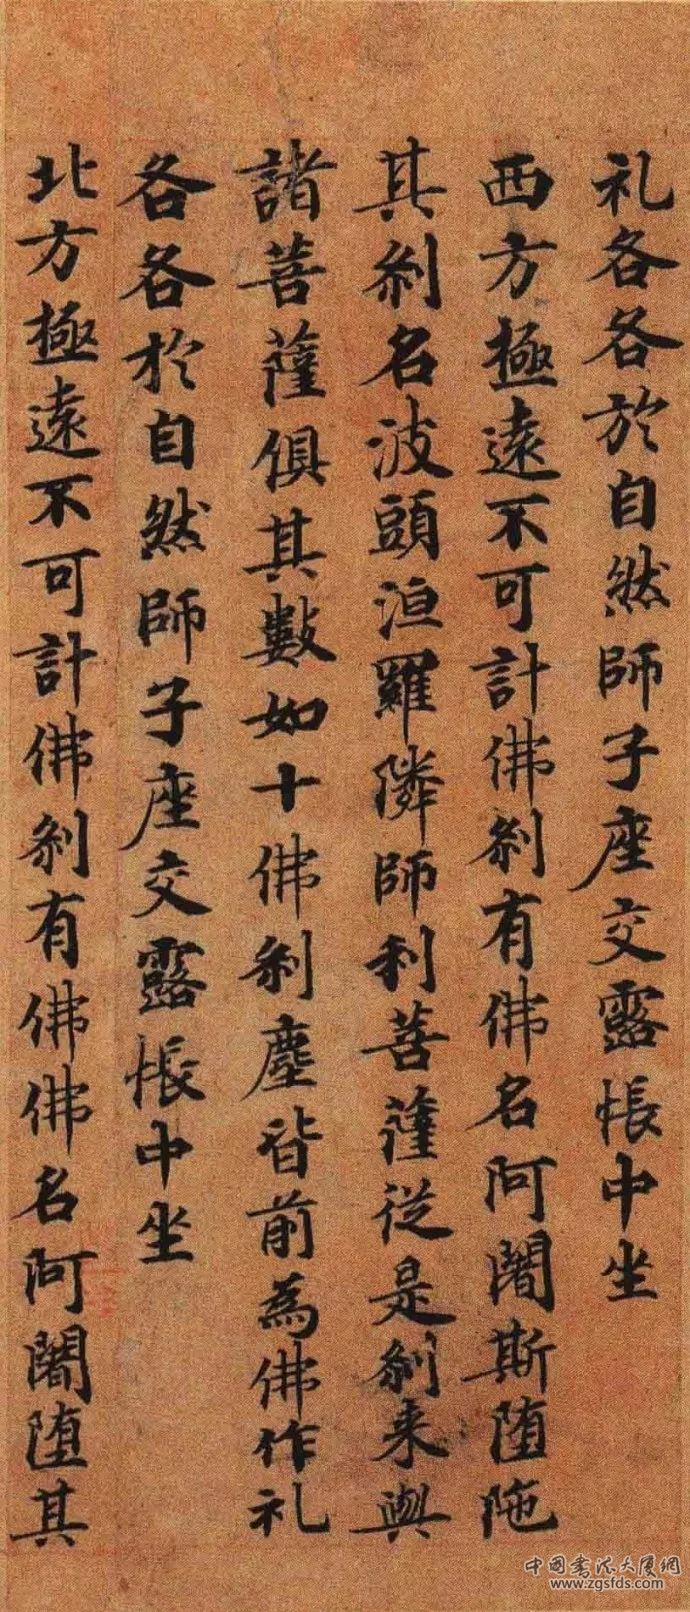 礼各各於自然師子座交露帳中坐
西方極遠不可計佛刹有佛名阿闍斯堕陁
其刹名波頭洹羅隣師利菩薩従是刹来與
諸菩薩俱其數如十佛刹塵皆前為佛作礼
各各於自然師子座交露帳中坐
北方極遠不可計佛刹有佛佛名阿闍堕其
中國書法大厦網
www.zgsfds.com